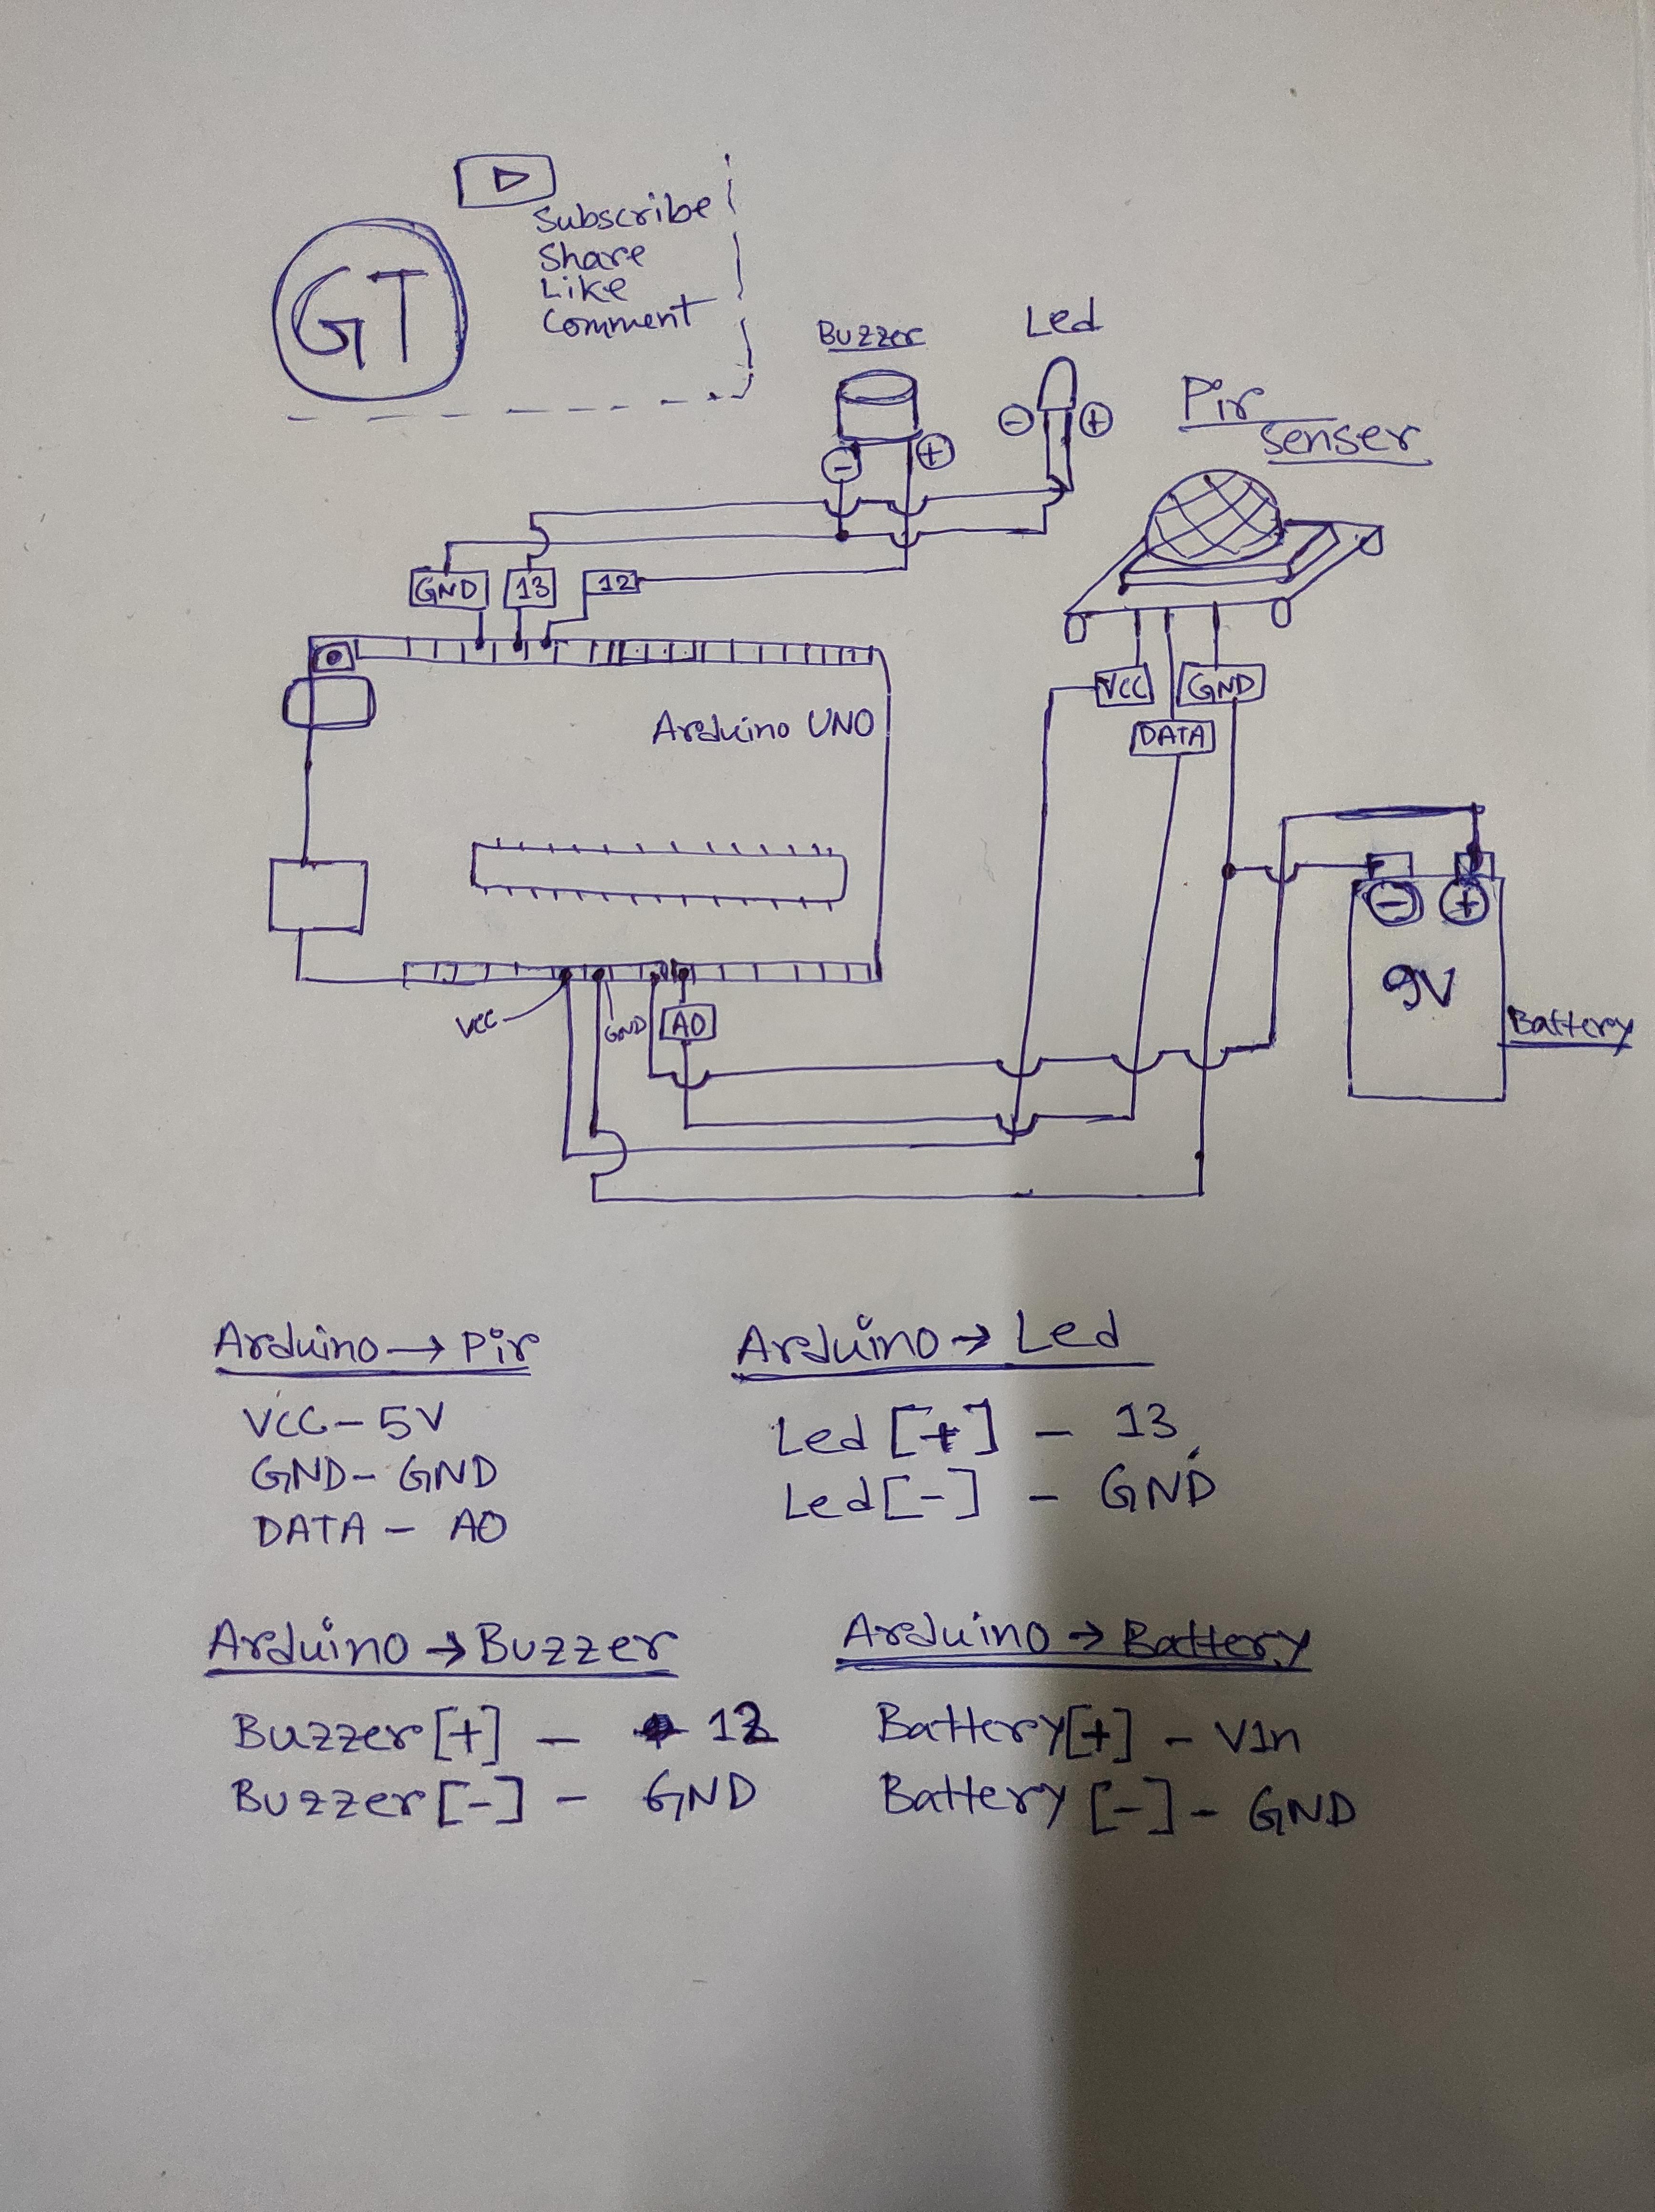 GT
Subscribe
Share
Like
Comment
Buzzer
Led
Pir
Senser
- +
- +
GND
13
12
Arduino UNO
VCC
GND
DATA
- +
9V
Battery
VCC
GND
A0
Arduino → Pir
VCC - 5V
GND - GND
DATA - A0
Arduino → Led
Led [+] - 13
Led [-] - GND
Arduino → Buzzer
Buzzer [+] - 12
Buzzer [-] - GND
Arduino → Battery
Battery [+] - VIn
Battery [-] - GND